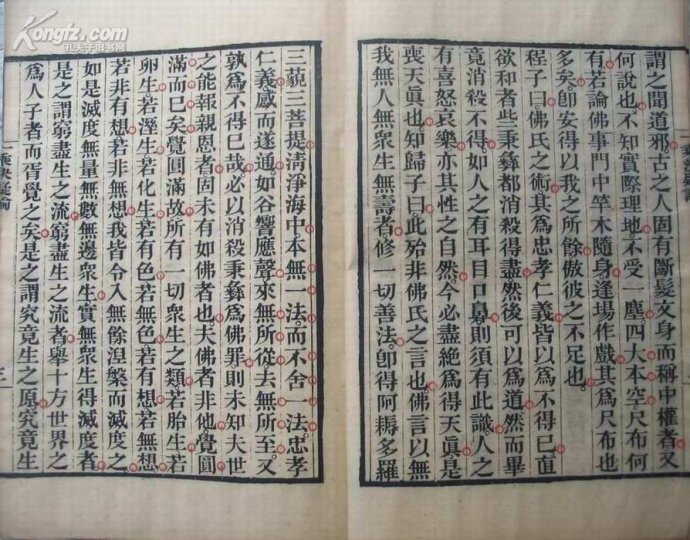 Kongfz.com
孔夫子旧书网
謂之聞道邪古之人固有斷髮文身而稱中權者又
何說也不知實際理地不受一塵四大本空尺布何
有若論佛事門中竿木隨身逢場作戲其爲尺布也
多矣卽安得以我之所餘傲彼之不足也
程子曰佛氏之術其爲忠孝仁義皆以爲不得已直
欲和者些秉彝都消殺得盡然後可以爲道然而畢
竟消殺不得如人之有耳目口鼻則須有此識人之
有喜怒哀樂亦其性之自然今必盡絕爲得天眞是
喪天眞也知歸子曰此殆非佛氏之言也佛言以無
我無人無衆生無壽者修一切善法卽得阿耨多羅
三藐三菩提淸淨海中本無一法而不舍一法忠孝
仁義感而遂通如谷響應聲來無所從去無所至又
孰爲不得已哉必以消殺秉彝爲佛罪則未知夫世
之能報親恩者固未有如佛者也夫佛者非他覺圓
滿而已矣覺圓滿故所有一切衆生之類若胎生若
卵生若溼生若化生若有色若無色若有想若無想
若非有想若非無想我皆令入無餘涅槃而滅度之
如是滅度無量無數無邊衆生實無衆生得滅度者
是之謂窮盡生之流窮盡生之流者舉十方世界之
爲人子者而胥覺之矣是之謂究竟生之原究竟生
一乘決疑論
三